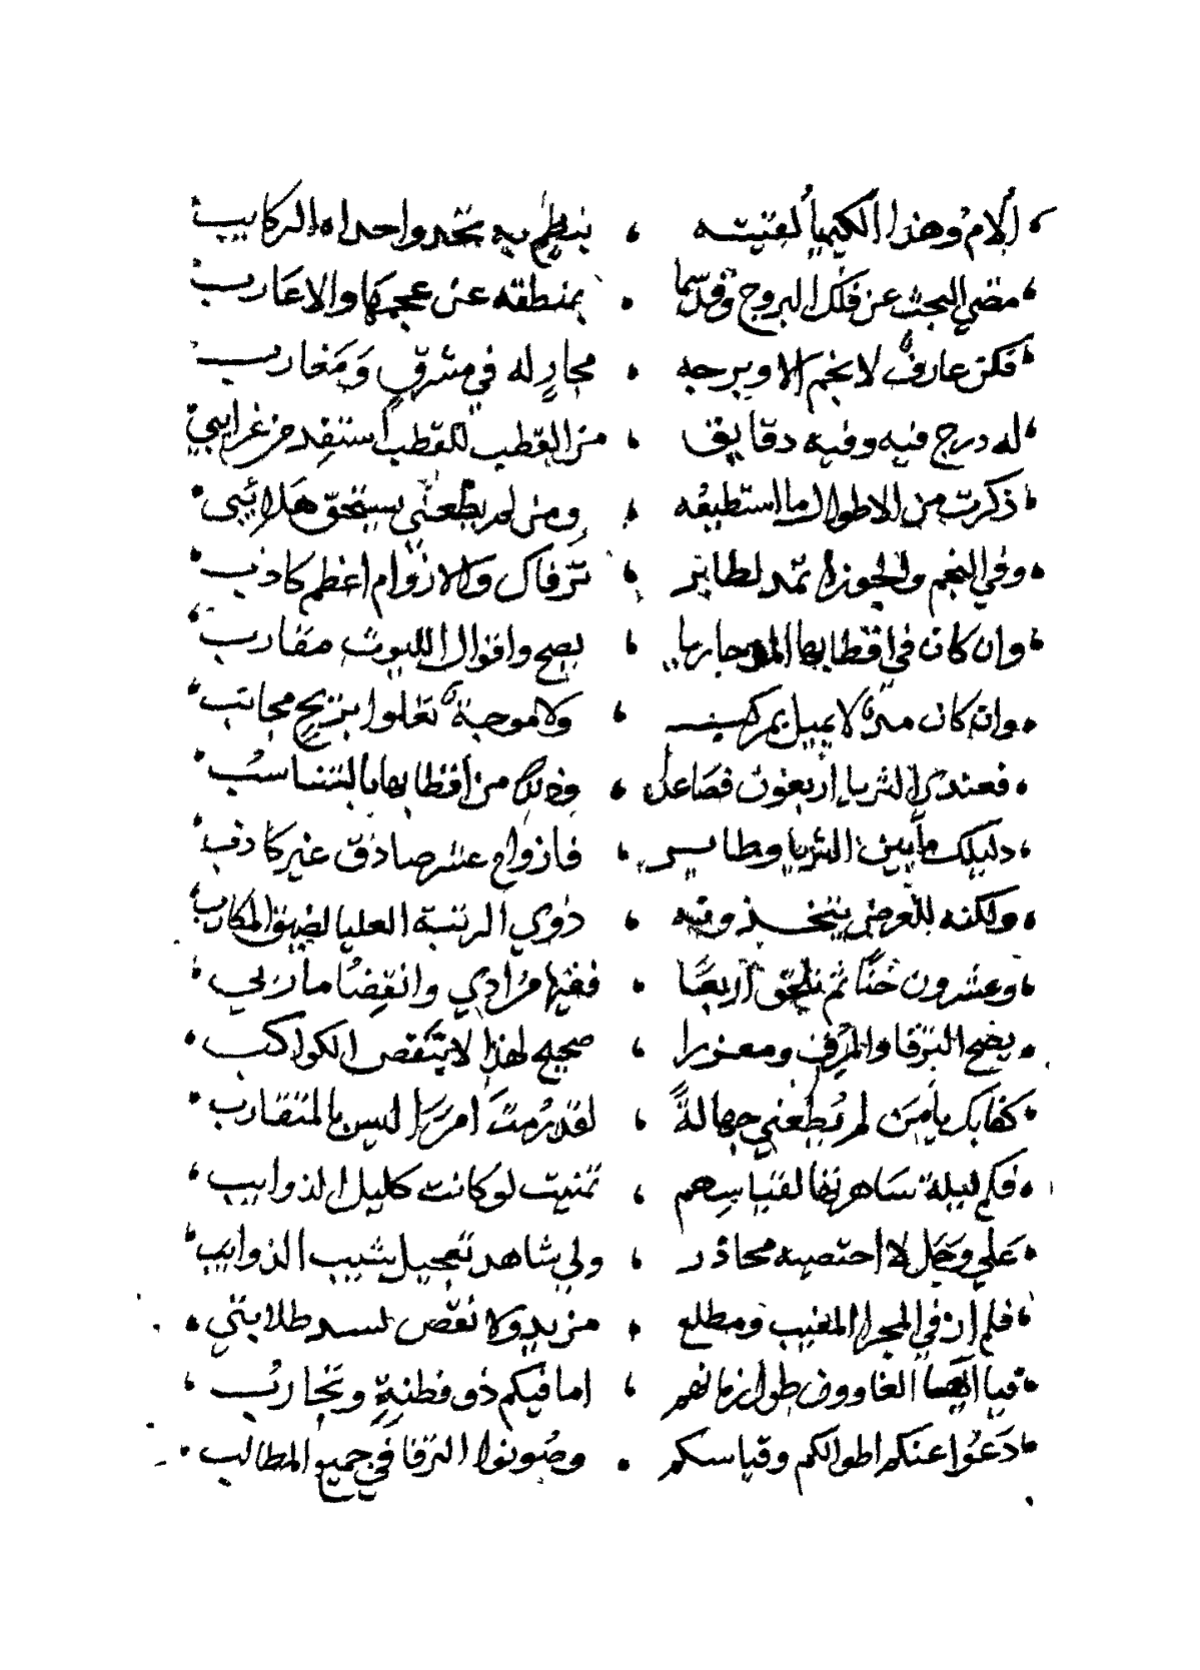 ألام وهذا الكيميا لقيته ، بنظم به تحدوا حداه الركايب
مضي البحث عن فلك البروج وقد سما ، بمنطقه عن عجمها والاعارب
فكن عارفا لا نجم الا وبرجه ، مجارٍ له في مشرقٍ وَمَغارب
له درج فيه وفيه دقايق ، من القطب للقطب استفد من غرايبي
ذكرت من الاطوال ما استطيعه ، ومن لم يطعني يستحق هلائبي
وفي النجم والجوزا تمد لطاير ، ترفاك والازوام اعظم كاذب
وان كان في اقطابها المد جاريا ، يصح واقوال الليوث مقارب
وان كان مدا لا يميل بمركب ، ولا موجة تعلوا بريح مجانب
فعندي الثريا اربعون فصاعدا ، وذلك من اقطابها بالتناسب
دليلك ما بين الثريا وطاير ، فازوام عشر صادق غير كاذب
ولكنه للعرض يتخذونه ، ذوي الرتبة العليا لضيق المكارب
وعشرون خنًا ثم نلحق اربعًا ، ففيها مُرادي وانقضا ماربي
يصح الترفا والمرق ومعزرا ، صحيح لهذا لا بنقص الكواكب
كفا بك يا من لم تُطعني جهالةً ، لقد رُمتَ امرا ليس بالمتقارب
فكم ليلة ساهرتها لقياسهم ، تمنيت لو كانت كليل الذوايب
علي وجل لا احتصيه محاذر ، ولي شاهد تعجيل شيب الذوايب
فلم ار في المجرا المغيب ومطلع ، مزيد ولا نقص لسد طلابتي
فيا ايها الغاوون طول زمانهم ، اما فيكم ذو فطنةٍ وتجارب
دَعُوا عنكم اطوالكم وقياسكم ، وصُونوا الترفا في جميع المطالب